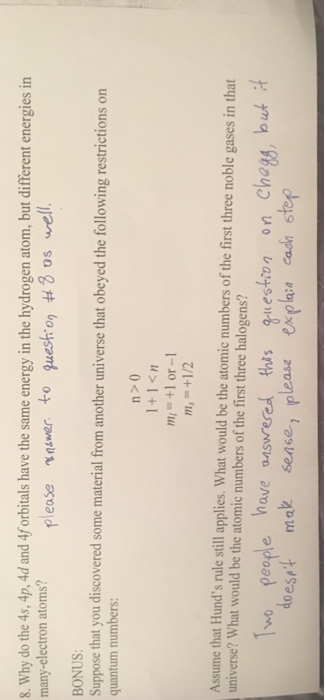 8. Why do the 4s, 4p, 4d and 4f orbitals have the same energy in the hydrogen atom, but different energies in
many-electron atoms?
please answer to question #8 as well.
BONUS:
Suppose that you discovered some material from another universe that obeyed the following restrictions on
quantum numbers:
n > 0
l + 1 < n
mₗ = +1 or −1
mₛ = +1/2
Assume that Hund's rule still applies. What would be the atomic numbers of the first three noble gases in that
universe? What would be the atomic numbers of the first three halogens?
Two people have answered this question on Chegg, but it
doesn't mak sense, please explain each step